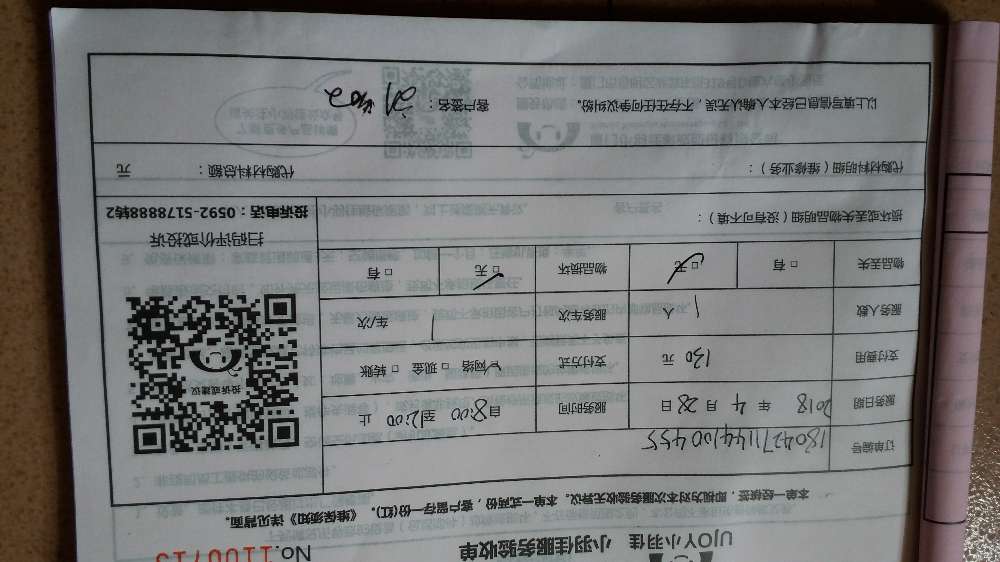 UJOY小羽佳 小羽佳服务验收单 No.1100713
本单一经核签，即视为对本次服务验收无异议。本单一式两份，客户留存一份(红)。《维保须知》详见背面。
订单编号 180427114400455
服务日期 2018 年 4 月 28 日 服务时间 自8:00 至 12:00 止
支付费用 130 元 支付方式 ☑网络 □现金 □转账
服务人数 1 人 服务车次 1 车/次
物品丢失 □有 ☑无 物品损坏 □有 ☑无
投诉或建议
扫码评价或投诉
投诉电话：0592-5178888转2
损坏或丢失物品明细（没有可不填）：
代购材料明细（维修业务）： 代购材料总额： 元
以上填写信息已经本人确认无误，不存在任何争议纠纷。 客户签名：